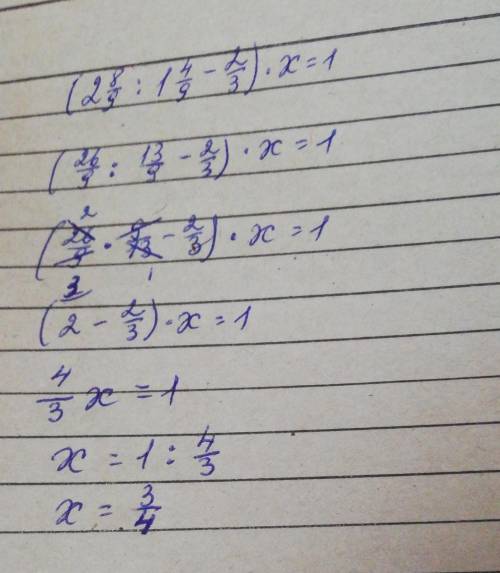 (2 8/9 : 1 4/9 - 2/3) · x = 1
(26/9 : 13/9 - 2/3) · x = 1
(26/9 · 9/13 - 2/3) · x = 1
(2 - 2/3) · x = 1
4/3 x = 1
x = 1 : 4/3
x = 3/4